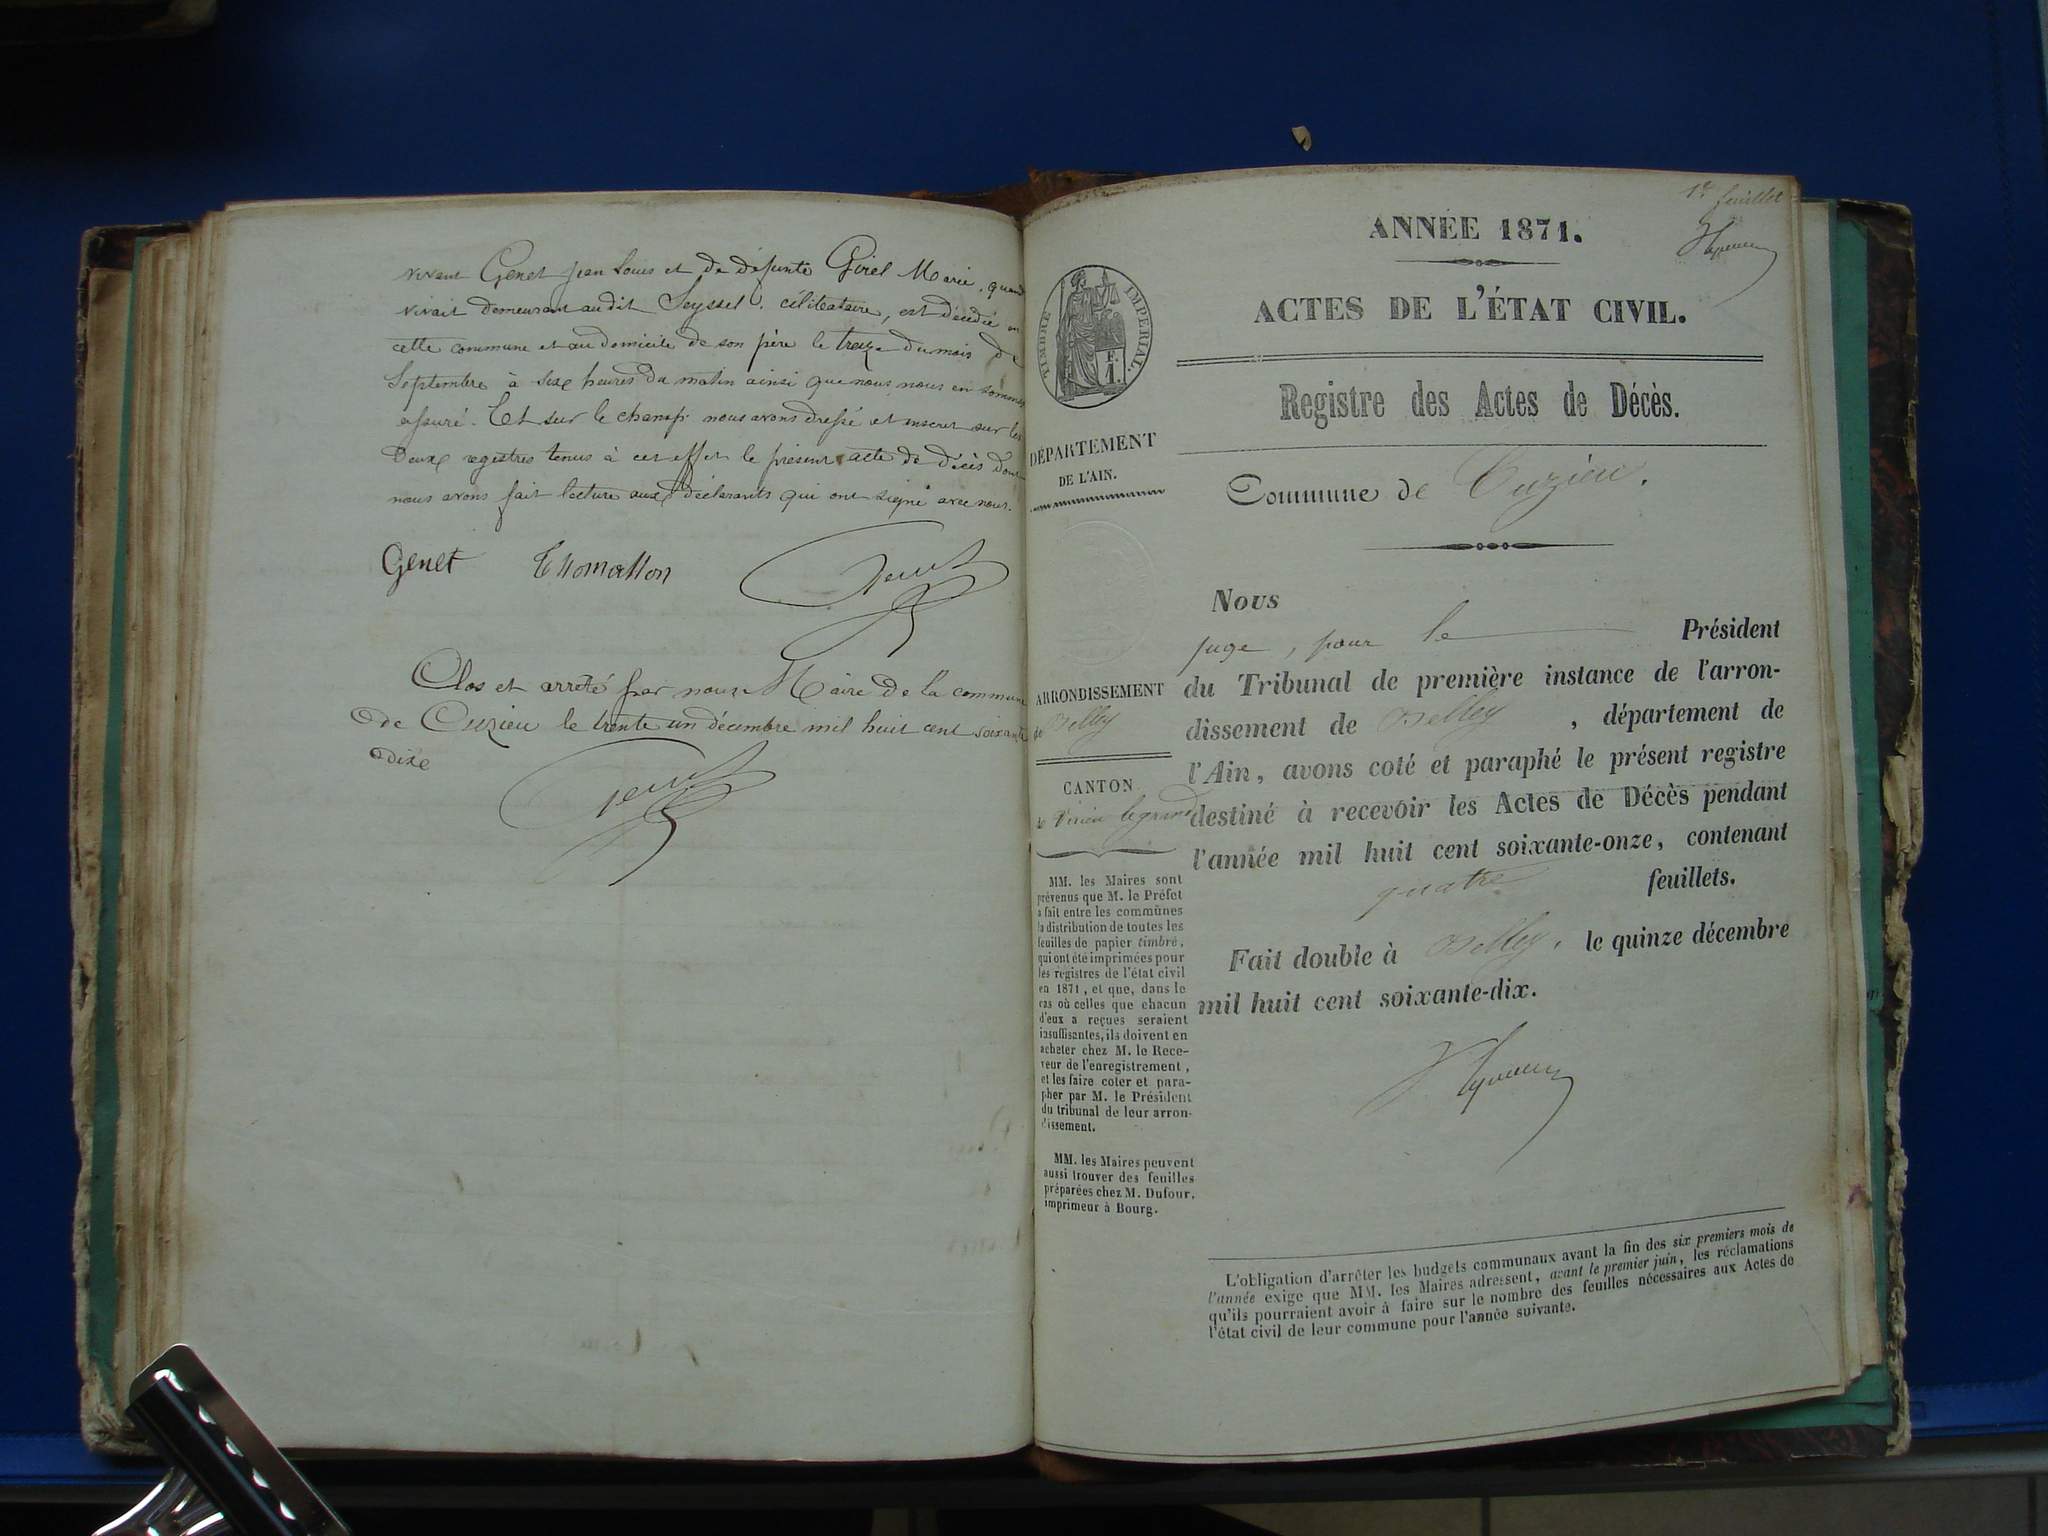 vivant Genet Jean Louis et de défunte Girel Marie, quand
vivait demeurant audit Seyssel. célibataire, est décédé en
cette commune et au domicile de son père le treize du mois de
Septembre à six heures du matin ainsi que nous nous en sommes
assuré. Et sur le champ nous avons dressé et inscrit sur les
deux registres tenus à cet effet le présent acte de décès dont
nous avons fait lecture aux déclarants qui ont signé avec nous.
Genet Thomasson
Clos et arrêté par nous Maire de la commune
de Cuzieu le trente un décembre mil huit cent soixante
dixe
1er feuillet
ANNÉE 1871.
ACTES DE L'ÉTAT CIVIL.
TIMBRE IMPÉRIAL.
F.
1.
Registre des Actes de Décès.
DÉPARTEMENT
DE L'AIN.
Commune de Cuzieu.
ARRONDISSEMENT
de Belley
CANTON
de Virieu legrand
MM. les Maires sont
prévenus que M. le Préfet
a fait entre les communes
la distribution de toutes les
feuilles de papier timbré,
qui ont été imprimées pour
les registres de l'état civil
en 1871, et que, dans le
cas où celles que chacun
d'eux a reçues seraient
insuffisantes, ils doivent en
acheter chez M. le Rece-
veur de l'enregistrement,
et les faire coter et para-
pher par M. le Président
du tribunal de leur arron-
dissement.
MM. les Maires peuvent
aussi trouver des feuilles
préparées chez M. Dufour,
imprimeur à Bourg.
Nous
juge, pour le Président
du Tribunal de première instance de l'arron-
dissement de Belley, département de
l'Ain, avons coté et paraphé le présent registre
destiné à recevoir les Actes de Décès pendant
l'année mil huit cent soixante-onze, contenant
quatre feuillets.
Fait double à Belley, le quinze décembre
mil huit cent soixante-dix.
L'obligation d'arrêter les budgets communaux avant la fin des six premiers mois de
l'année exige que MM. les Maires adressent, avant le premier juin, les réclamations
qu'ils pourraient avoir à faire sur le nombre des feuilles nécessaires aux Actes de
l'état civil de leur commune pour l'année suivante.